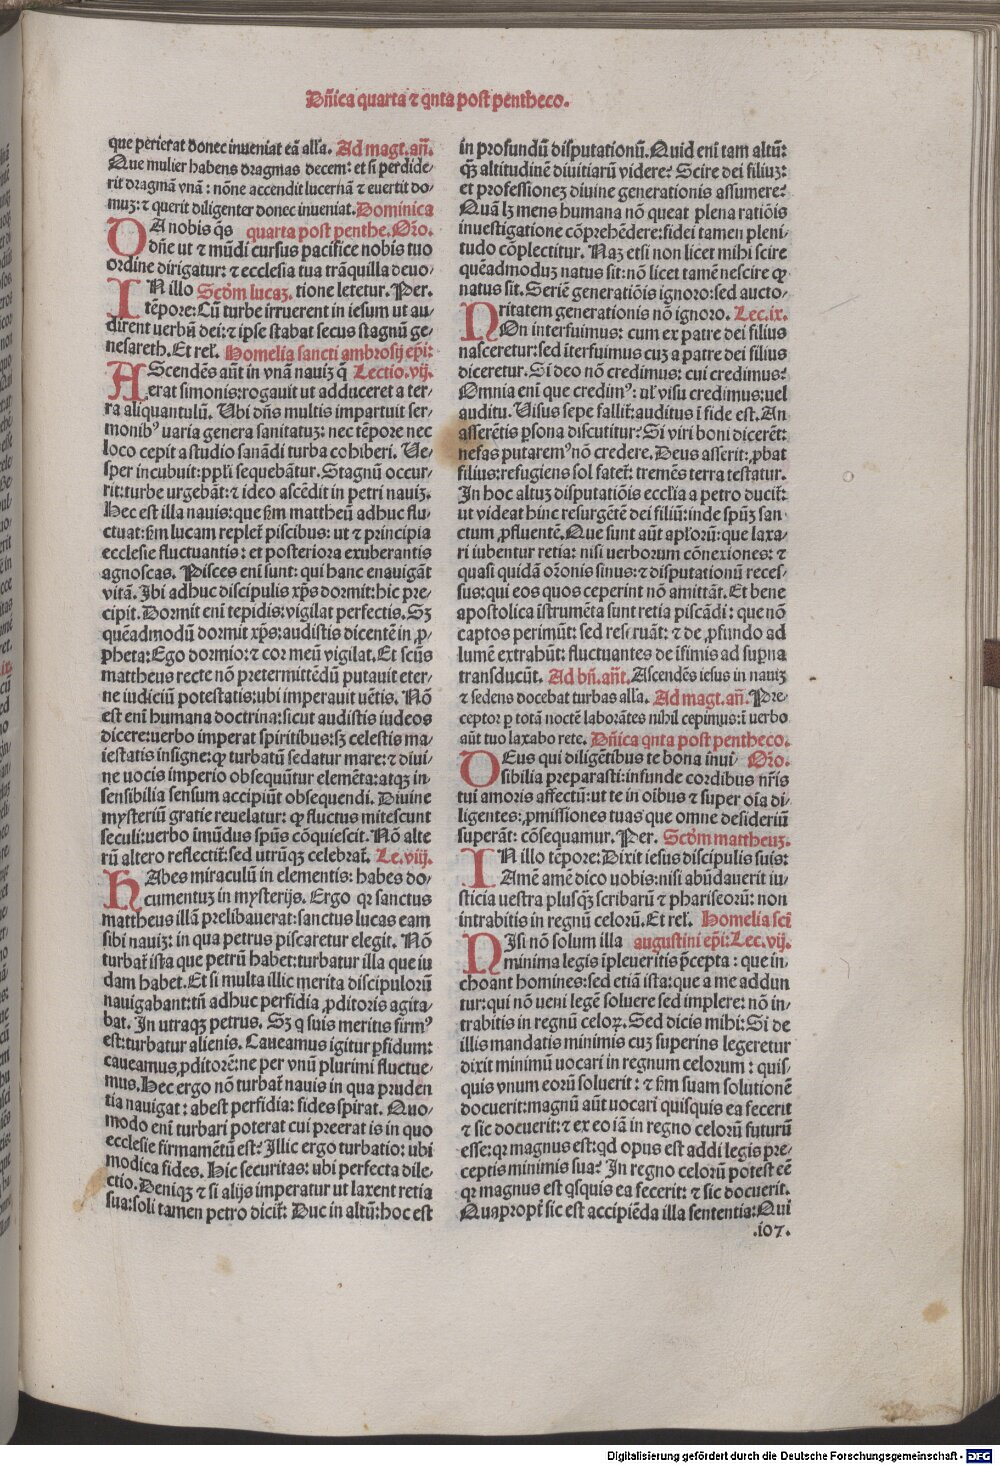 Dñica quarta ⁊ q̃nta post pentheco.
que perierat donec inueniat eã all'a. Ad magt. añ.
Que mulier habens dragmas decem: et si perdide-
rit dragmã vnã: nõne accendit lucernã ⁊ euertit do-
muz: ⁊ querit diligenter donec inueniat. Dominica
DA nobis q̃s quarta post penthe. Or̃o.
dñe ut ⁊ mũdi cursus pacifice nobis tuo
ordine dirigatur: ⁊ ecclesia tua trãquilla deuo-
IN illo Scd'm lucaz. tione letetur. Per.
tẽpore: Cũ turbe irruerent in iesum ut au-
dirent uerbũ dei: ⁊ ipse stabat secus stagnũ ge-
nesareth. Et rel'. Homelia sancti ambrosij ep̃i:
AScendẽs aũt in vnã nauiz q̃ Lectio. vij.
erat simonis: rogauit ut adduceret a ter-
ra aliquantulũ. Ubi dñs multis impartuit ser-
monib⁹ uaria genera sanitatuz: nec tẽpore nec
loco cepit a studio sanãdi turba cohiberi. Ue-
sper incubuit: ppl'i sequebãtur. Stagnũ occur-
rit: turbe urgebãt: ⁊ ideo ascẽdit in petri nauiz.
Hec est illa nauis: que s'm mattheũ adhuc flu-
ctuat: s'm lucam replet' piscibus: ut ⁊ principia
ecclesie fluctuantis: et posteriora exuberantis
agnoscas. Pisces eni sunt: qui hanc enauigãt
vitã. Ibi adhuc discipulis xp̃s dormit: hic pre-
cipit. Dormit eni tepidis: vigilat perfectis. Sz
quẽadmodũ dormit xp̃s: audistis dicentẽ in ꝓ-
pheta: Ego dormio: ⁊ cor meũ vigilat. Et scũs
mattheus recte nõ pretermittẽdũ putauit eter-
ne iudiciũ potestatis: ubi imperauit uẽtis. Nõ
est eni humana doctrina: sicut audistis iudeos
dicere: uerbo imperat spiritibus: sz celestis ma-
iestatis insigne: ꝙ turbatũ sedatur mare: ⁊ diui-
ne uocis imperio obsequũtur elemẽta: atqz in-
sensibilia sensum accipiũt obsequendi. Diuine
mysteriũ gratie reuelatur: ꝙ fluctus mitescunt
seculi: uerbo imũdus spũs cõquiescit. Nõ alte
rũ altero reflectit': sed utrũqz celebrat'. Le. viij.
HAbes miraculũ in elementis: habes do-
cumentuz in mysterijs. Ergo qr sanctus
mattheus illã prelibauerat: sanctus lucas eam
sibi nauiz: in qua petrus piscaretur elegit. Nõ
turbat' ista que petrũ habet: turbatur illa que iu
dam habet. Et si multa illic merita discipulorũ
nauigabant: tñ adhuc perfidia ꝓditoris agita-
bat. In utraqz petrus. Sz q suis meritis firm⁹
est: turbatur alienis. Caueamus igitur ꝑfidum:
caueamus ꝓditorẽ: ne per vnũ plurimi fluctue-
mus. Hec ergo nõ turbat' nauis in qua pruden
tia nauigat: abest perfidia: fides spirat. Quo-
modo eni turbari poterat cui preerat is in quo
ecclesie firmamẽtũ est? Illic ergo turbatio: ubi
modica fides. Hic securitas: ubi perfecta dile-
ctio. Deniqz ⁊ si alijs imperatur ut laxent retia
sua: soli tamen petro dicit': Duc in altũ: hoc est
in profundũ disputationũ. Quid eni tam altũ:
q̃z altitudinẽ diuitiarũ videre? Scire dei filiuz:
et professionez diuine generationis assumere?
Quã lz mens humana nõ queat plena ratiõis
inuestigatione cõprehẽdere: fidei tamen pleni-
tudo cõplectitur. Naz etsi non licet mihi scire
quẽadmoduz natus sit: nõ licet tamẽ nescire ꝙ
natus sit. Seriẽ generatiõis ignoro: sed aucto-
ritatem generationis nõ ignoro. Lec. ix.
NOn interfuimus: cum ex patre dei filius
nasceretur: sed ĩterfuimus cuz a patre dei filius
diceretur. Si deo nõ credimus: cui credimus?
Omnia eni que credim⁹: ul' visu credimus: uel
auditu. Uisus sepe fallit': auditus ĩ fide est. An
asserẽtis ꝑsona discutitur? Si viri boni dicerẽt:
nefas putarem⁹ nõ credere. Deus asserit: ꝓbat
filius: refugiens sol fatet': tremẽs terra testatur.
In hoc altuz disputatiõis ecclia a petro ducit':
ut videat hinc resurgẽtẽ dei filiũ: inde spũz san-
ctum ꝓfluentẽ. Que sunt aũt apl'orũ: que laxa-
ri iubentur retia: nisi uerborum cõnexiones: ⁊
quasi quidã or̃onis sinus: ⁊ disputationũ reces-
sus: qui eos quos ceperint nõ amittãt. Et bene
apostolica ĩstrumẽta sunt retia piscãdi: que nõ
captos perimũt: sed reseruãt: ⁊ de ꝓfundo ad
lumẽ extrahũt: fluctuantes de ĩfimis ad suꝑna
transducũt. Ad bñ. añt. Ascendẽs iesus in nauiz
⁊ sedens docebat turbas all'a. Ad magt. añ. Pre-
ceptor ꝑ totã noctẽ laborãtes nihil cepimus: ĩ verbo
aũt tuo laxabo rete. Dñica q̃nta post pentheco.
DEus qui diligẽtibus te bona inui- Or̃o.
sibilia preparasti: infunde cordibus nr̃is
tui amoris affectũ: ut te in oĩbus ⁊ super oĩa di-
ligentes: ꝓmissiones tuas que omne desideriũ
superãt: cõsequamur. Per. Scd'm mattheuz.
IN illo tẽpore: Dixit iesus discipulis suis:
Amẽ amẽ dico uobis: nisi abũdauerit iu-
sticia uestra plusq̃z scribarũ ⁊ phariseorũ: non
intrabitis in regnũ celorũ. Et rel'. Homelia scĩ
NIsi nõ solum illa augustini ep̃i: Lec. vij.
minima legis ĩpleueritis p̃cepta: que in-
choant homines: sed etiã ista: que a me addun
tur: qui nõ ueni legẽ soluere sed implere: nõ in-
trabitis in regnũ celoꝝ. Sed dicis mihi: Si de
illis mandatis minimis cuz superius legeretur
dixit minimũ uocari in regnum celorum: quis-
quis vnum eorũ soluerit: ⁊ s'm suam solutionẽ
docuerit: magnũ aũt uocari quisquis ea fecerit
⁊ sic docuerit: ⁊ ex eo iã in regno celorũ futurũ
esse: qr magnus est: qd opus est addi legis pre-
ceptis minimis sua? In regno celorũ potest eẽ
qr magnus est q̃squis ea fecerit: ⁊ sic docuerit.
Quapropt' sic est accipiẽda illa sententia: Qui
.107.
Digitalisierung gefördert durch die Deutsche Forschungsgemeinschaft - DFG